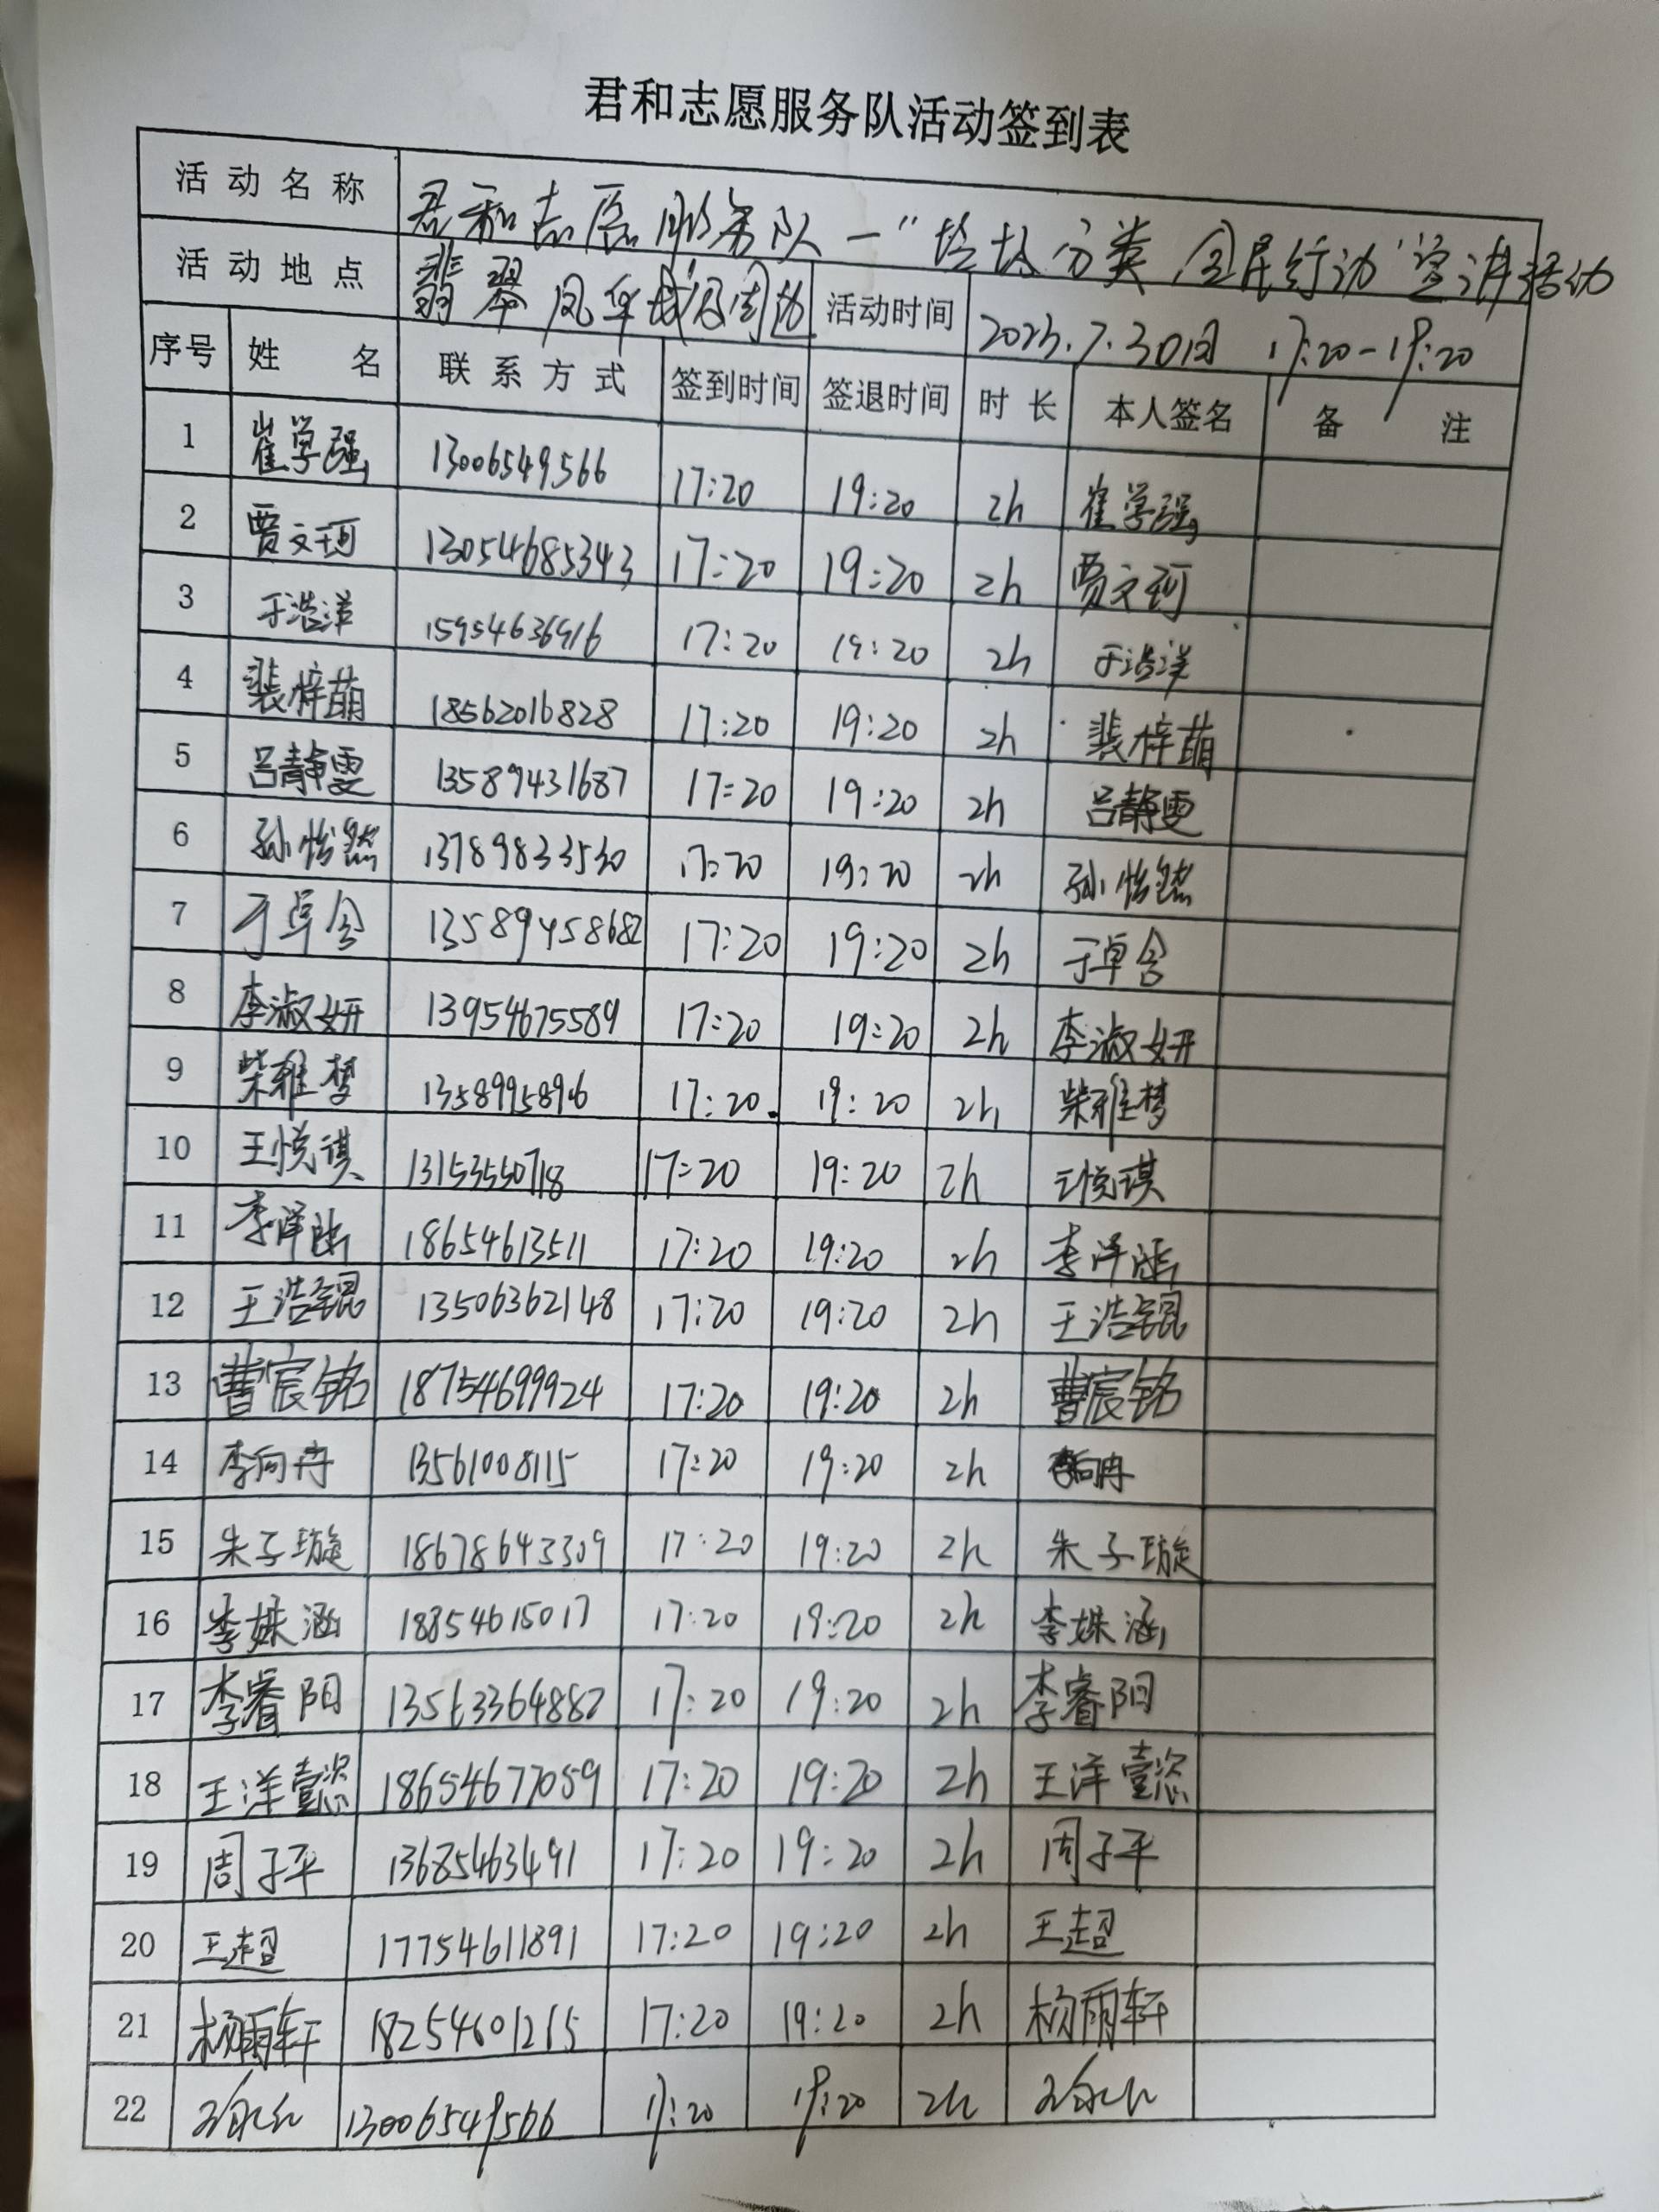 君和志愿服务队活动签到表
活动名称 君和志愿服务队—“垃圾分类 全民行动”宣讲活动
活动地点 翡翠凤华城及周边 活动时间 2023.7.30日 17:20-19:20
序号 姓名 联系方式 签到时间 签退时间 时长 本人签名 备注
1 崔学强 13006549566 17:20 19:20 2h 崔学强
2 贾文珂 13054685343 17:20 19:20 2h 贾文珂
3 于浩洋 15954636916 17:20 19:20 2h 于浩洋
4 裴梓萌 18562016828 17:20 19:20 2h 裴梓萌
5 吕静雯 13589431687 17:20 19:20 2h 吕静雯
6 孙怡然 13789833530 17:20 19:20 2h 孙怡然
7 于卓含 13589458682 17:20 19:20 2h 于卓含
8 李淑妍 13954675589 17:20 19:20 2h 李淑妍
9 柴雅梦 17:20 19:20 2h 柴雅梦
10 王悦琪 13153550718 17:20 19:20 2h 王悦琪
11 李泽 18654613511 17:20 19:20 2h 李泽
12 王浩锟 13506362148 17:20 19:20 2h 王浩锟
13 曹宸铭 18754699924 17:20 19:20 2h 曹宸铭
14 李向冉 13561008115 17:20 19:20 2h 李向冉
15 朱子璇 18678643309 17:20 19:20 2h 朱子璇
16 李姝涵 18354615017 17:20 19:20 2h 李姝涵
17 李睿阳 13563364882 17:20 19:20 2h 李睿阳
18 王洋懿 18654677059 17:20 19:20 2h 王洋懿
19 周子平 13685463491 17:20 19:20 2h 周子平
20 王超 17754611891 17:20 19:20 2h 王超
21 杨雨轩 18254601215 17:20 19:20 2h 杨雨轩
22 13006549566 17:20 19:20 2h